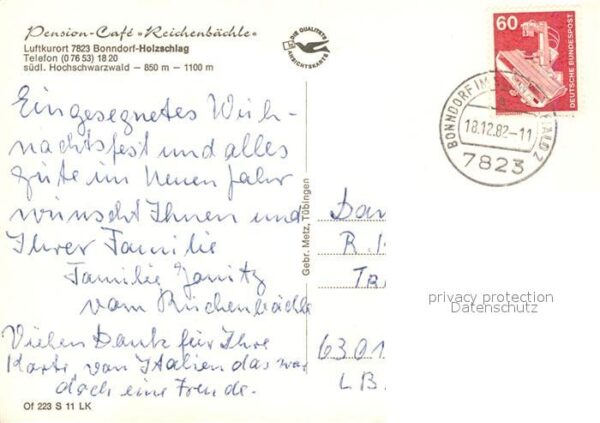 Pension-Café »Reichenbächle«
Luftkurort 7823 Bonndorf-Holzschlag
Telefon (0 76 53) 18 20
südl. Hochschwarzwald — 850 m – 1100 m
DIE QUALITÄTS
ANSICHTSKARTE
60
DEUTSCHE BUNDESPOST
BONNDORF IM
18.12.82-11
7823
Ein gesegnetes Weih-
nachtsfest und alles
gute im Neuen Jahr
wünscht Ihnen und
Ihrer Familie
Familie
vom
Vielen Dank für Ihre
Karte, von Italien das war
doch eine Freude.
Gebr. Metz, Tübingen
R.
6301
LB
privacy protection
Datenschutz
Of 223 S 11 LK